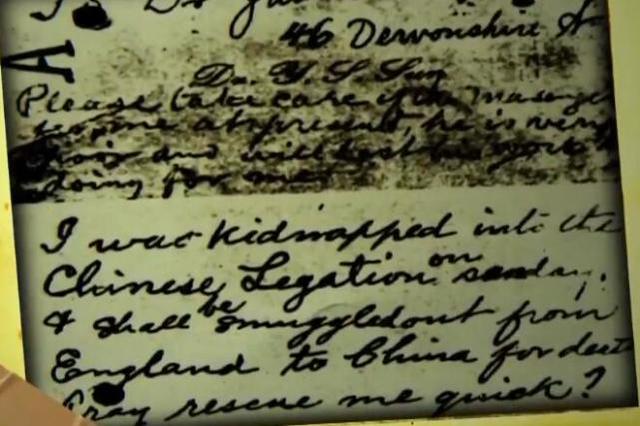 46 Devonshire St
A
Dr. Y S Sun
Please take care of the messenger
for me at present, he is very
poor and will lost his work
doing for me
I was kidnapped into the
Chinese Legation on sunday.
& shall be smuggled out from
England to China for deat
Pray rescue me quick?